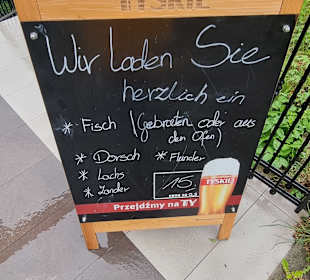 TYSKIE
Wir laden Sie
herzlich ein
* Fisch (gebraten oder aus
den Ofen)
* Dorsch * Flander
* Lachs
* Zander
15,
TYSKIE
Przejdźmy na TY